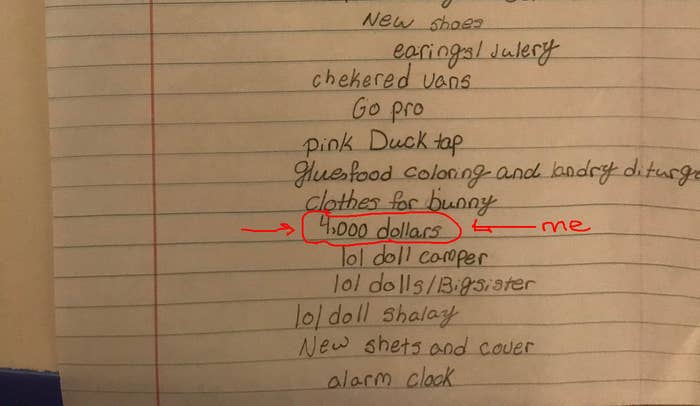 New shoes
earings/Julery
chekered vans
Go pro
pink Duck tap
glue food coloring and landry diturge
clothes for bunny
4,000 dollars me
lol doll camper
lol dolls/Bigsister
lol doll shalay
New shets and cover
alarm clock